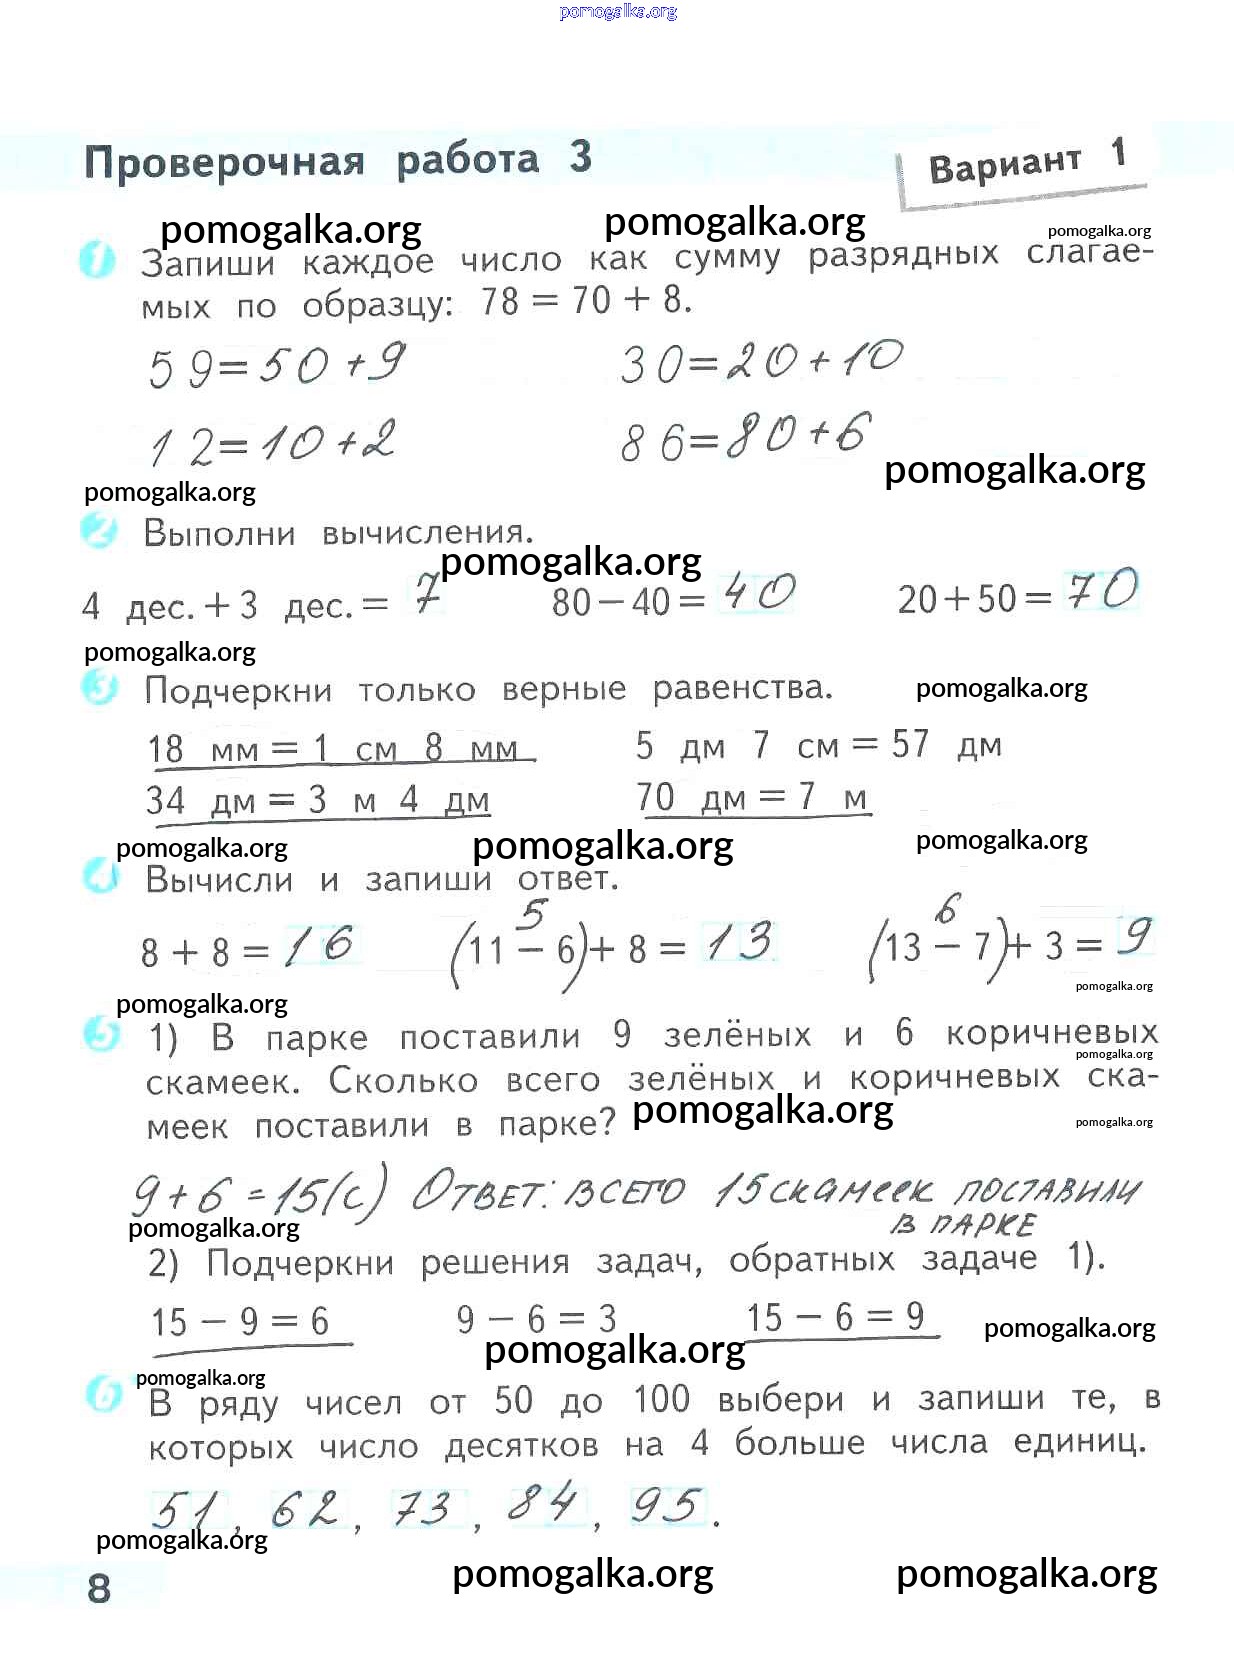 pomogalka.org
Проверочная работа 3 Вариант 1
pomogalka.org pomogalka.org pomogalka.org
1 Запиши каждое число как сумму разрядных слагае-
мых по образцу: 78 = 70 + 8.
59=50+9 30=20+10
12=10+2 86=80+6
pomogalka.org
pomogalka.org
2 Выполни вычисления.
pomogalka.org
4 дес. + 3 дес. = 7 80 − 40 = 40 20 + 50 = 70
pomogalka.org
3 Подчеркни только верные равенства. pomogalka.org
18 мм = 1 см 8 мм 5 дм 7 см = 57 дм
34 дм = 3 м 4 дм 70 дм = 7 м
pomogalka.org pomogalka.org pomogalka.org
4 Вычисли и запиши ответ.
5 6
8 + 8 = 16 (11 − 6) + 8 = 13 (13 − 7) + 3 = 9
pomogalka.org
pomogalka.org
5 1) В парке поставили 9 зелёных и 6 коричневых
pomogalka.org
скамеек. Сколько всего зелёных и коричневых ска-
меек поставили в парке? pomogalka.org pomogalka.org
9+6=15(с) Ответ: всего 15 скамеек поставили
в парке
pomogalka.org
2) Подчеркни решения задач, обратных задаче 1).
15 − 9 = 6 9 − 6 = 3 15 − 6 = 9
pomogalka.org pomogalka.org
pomogalka.org
6 В ряду чисел от 50 до 100 выбери и запиши те, в
которых число десятков на 4 больше числа единиц.
51, 62, 73, 84, 95.
pomogalka.org
8 pomogalka.org pomogalka.org